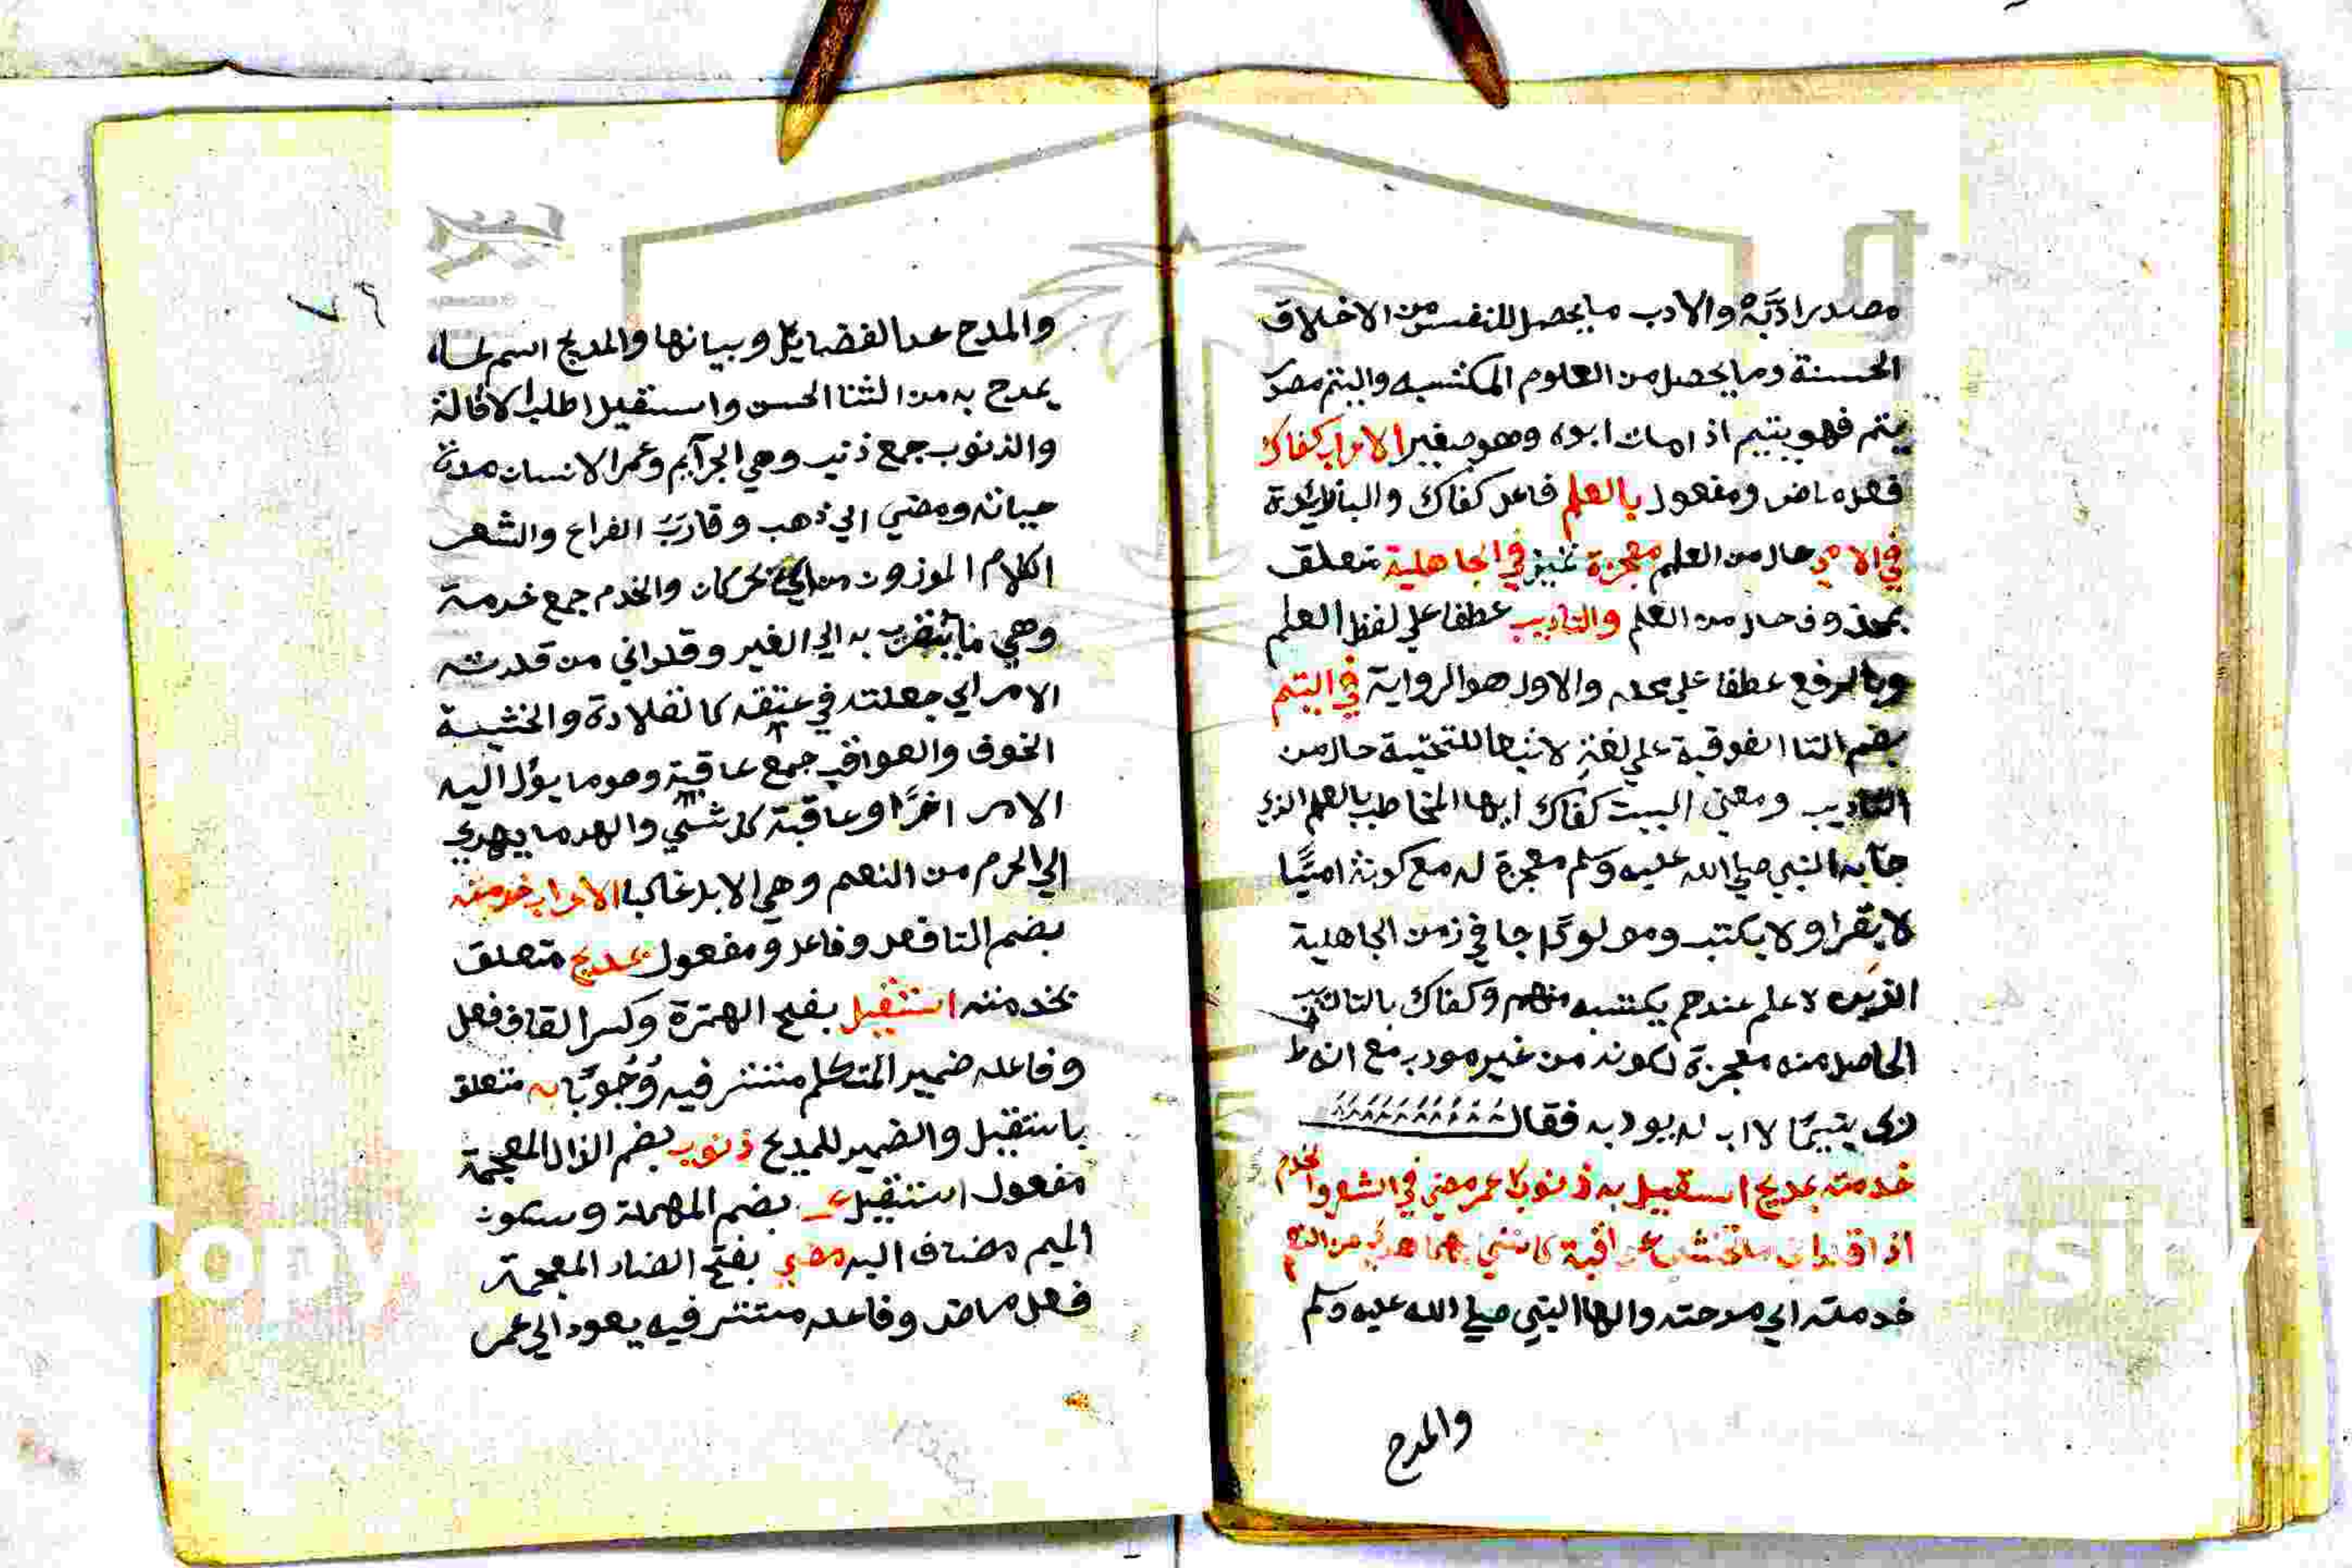 مصدر ادَّبَهُ والادب ما يحصل للنفس من الاخلاق
الحسنة وما يحصل من العلوم المكتسبه واليتم مصدر
يتم فهو يتيم اذا مات ابوه وهو صغير الاعراب كفاك
فعل ماض ومفعول بالعلم فاعل كفاك والبا زايدة
في الامي حال من العلم معجزة تمييز في الجاهلية متعلق
بمحذوف حال من العلم والتاديب عطفا علي لفظ العلم
وبالرفع عطفا علي محله والاول هو الرواية في اليتم
بضم التا الفوقية علي لغة لاتباعها للتحتية حال من
التاديب ومعني البيت كفاك ايها المخاطب بالعلم الذي
جا به النبي صلي الله عليه وسلم معجزة له مع كونه اميًّا
لا يقرا ولا يكتب ومولودًا جا في زمن الجاهلية
الذين لا علم عندهم يكتسبه منهم وكفاك بالتاديب
الحاصل منه معجزة لكونه من غير مودب مع انه
ربي يتيمًا لا اب له يودبه فقال
خدمته بمديح استقيل به ذنوب عمر مضي في الشعر والخدم
اذ قلداني ما تخشي عواقبه كانني بهما هدي من النعم
خدمته اي مدحته والها النبي صلي الله عليه وسلم
والمدح
٧٦
والمدح عد الفضايل وبيانها والمديح اسم لما
يمدح به من الثنا الحسن واستقيل اطلب الاقالة
والذنوب جمع ذنب وهي الجرآيم وعمر الانسان مدة
حياته ومضي اي ذهب وقارب الفراغ والشعر
الكلام الموزون من اي كان والخدم جمع خدمة
وهي ما يتقرب به الي الغير وقلداني من قلدته
الامر اي جعلته في عنقه كالقلادة والخشية
الخوف والعواقب جمع عاقبة وهو ما يؤل اليه
الامر اخرًا وعاقبة كل شئي والهد ما يهدي
الي الحرم من النعم وهي الابل غالبا الاعراب خدمته
بضم التا فعل وفاعل ومفعول بمديح متعلق
بخدمته استقيل بفتح الهمزة وكسر القاف فعل
وفاعله ضمير المتكلم مستتر فيه وُجُوبًا به متعلق
باستقيل والضمير للمديح ذنوب بضم الذال المعجمة
مفعول استقيل عمر بضم المهملة وسكون
الميم مضاف اليه مضي بفتح الضاد المعجمة
فعل ماض وفاعله مستتر فيه يعود الي عمر